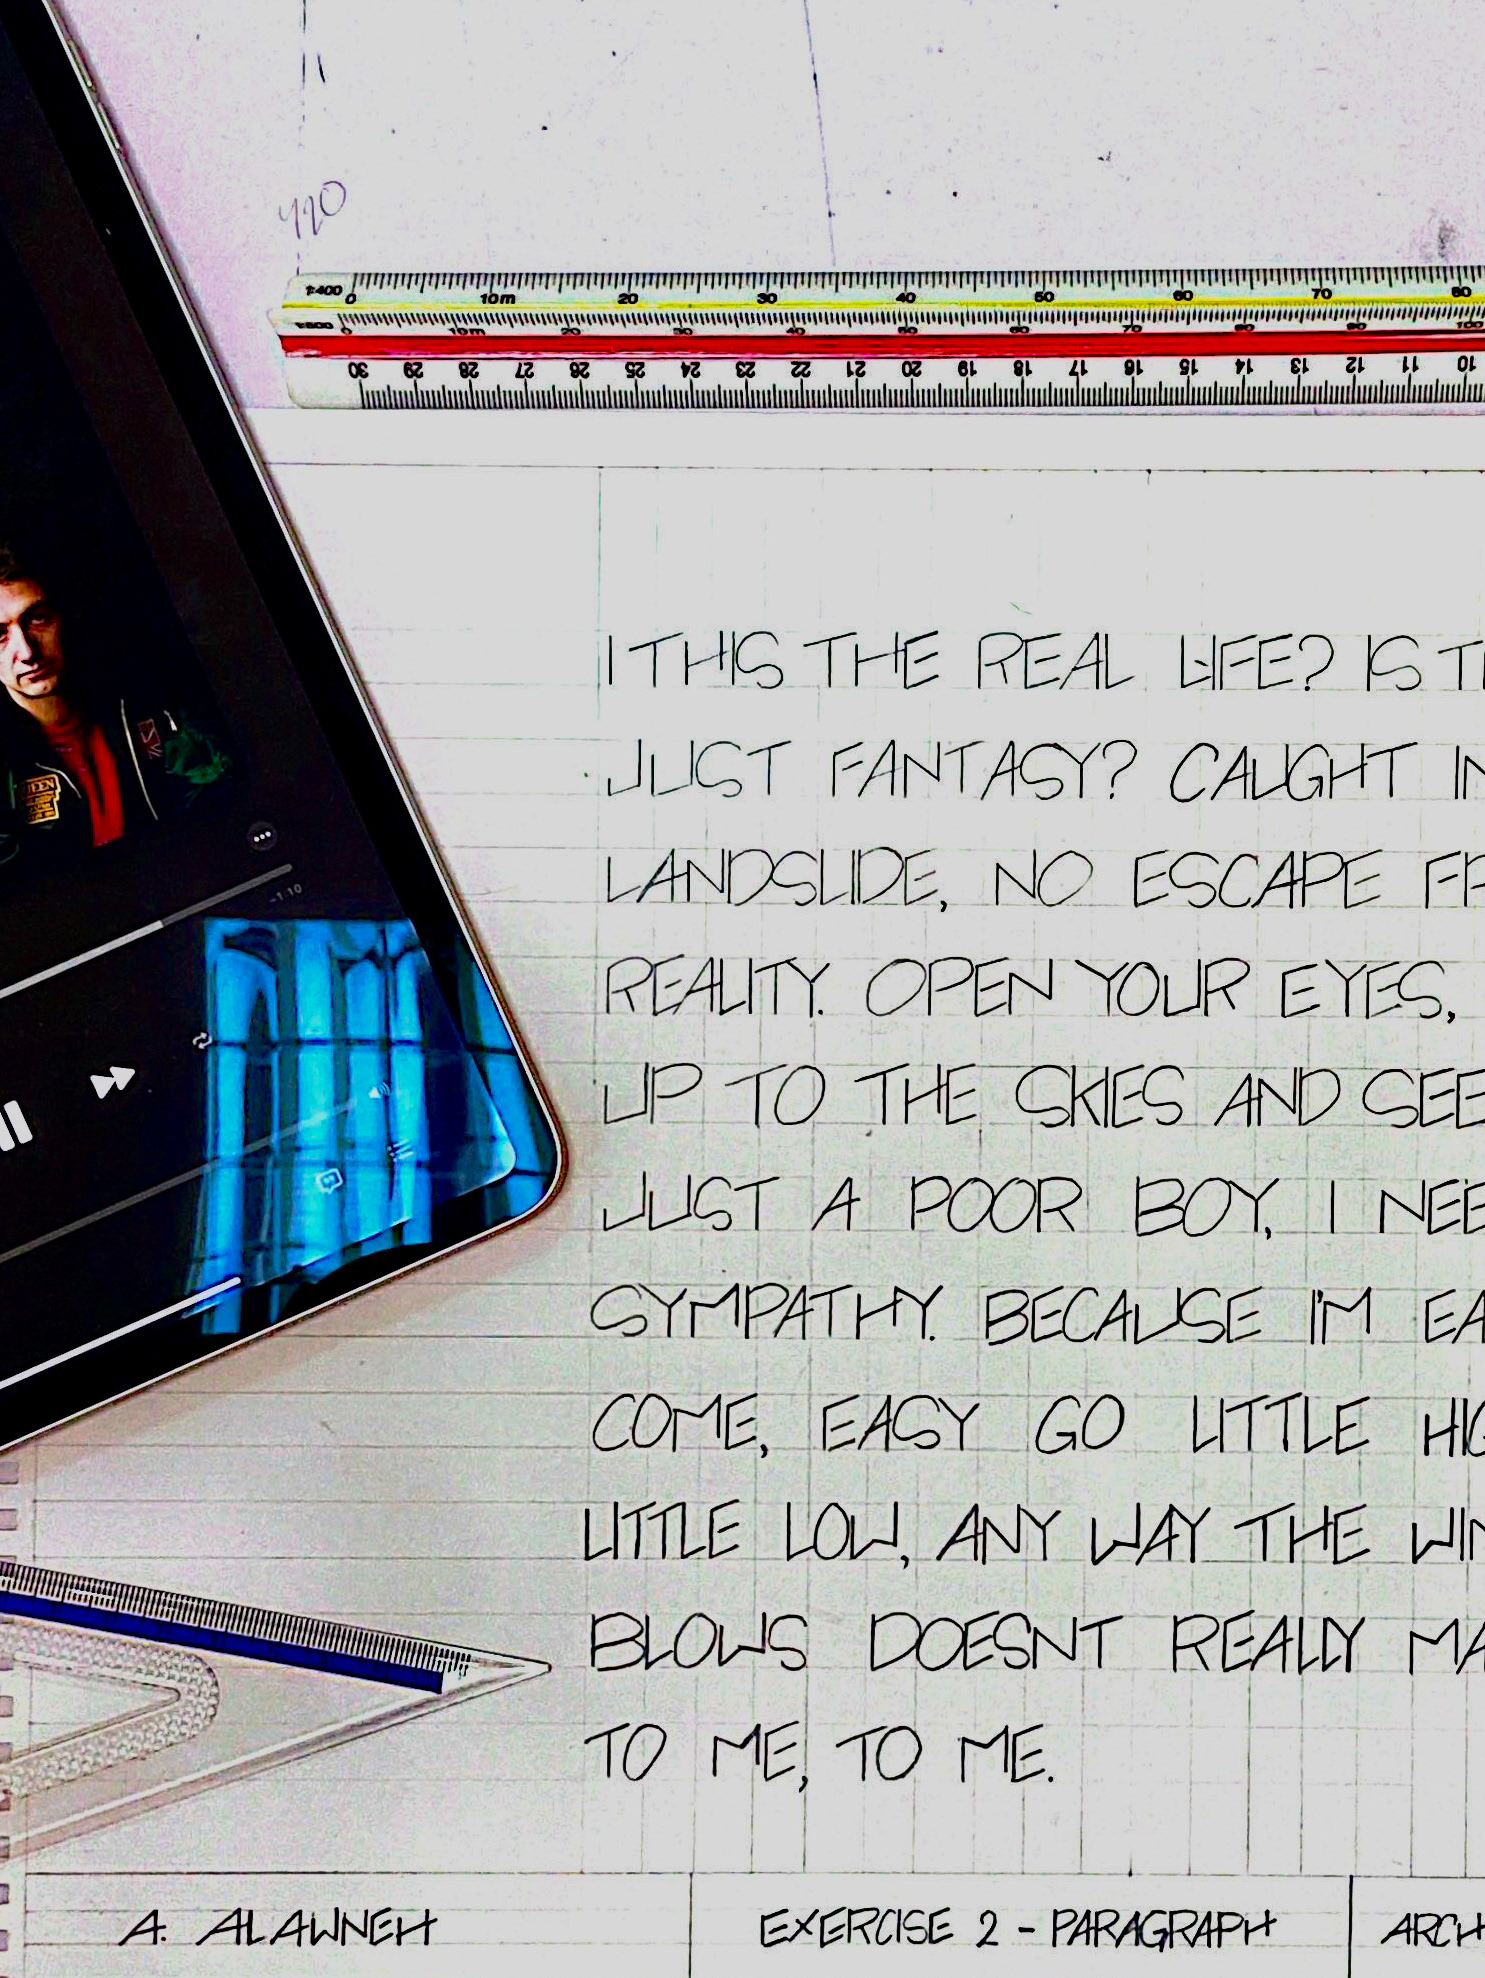 420
1:400 0 10m 20 30 40 50 60 70 80
1:500 0 10m 20 30 40 50 60 70 80 90 100
30 29 28 27 26 25 24 23 22 21 20 19 18 17 16 15 14 13 12 11 10
-1:10
I THIS THE REAL LIFE? IS
JUST FANTASY? CAUGHT IN
LANDSLIDE, NO ESCAPE
REALITY. OPEN YOUR EYES,
UP TO THE SKIES AND SEE
JUST A POOR BOY, I NEE
SYMPATHY. BECAUSE I'M EA
COME, EASY GO LITTLE HIG
LITTLE LOW, ANY WAY THE WIN
BLOWS DOESNT REALLY MA
TO ME, TO ME.
A. ALAWNEH
EXERCISE 2 - PARAGRAPH
ARCH